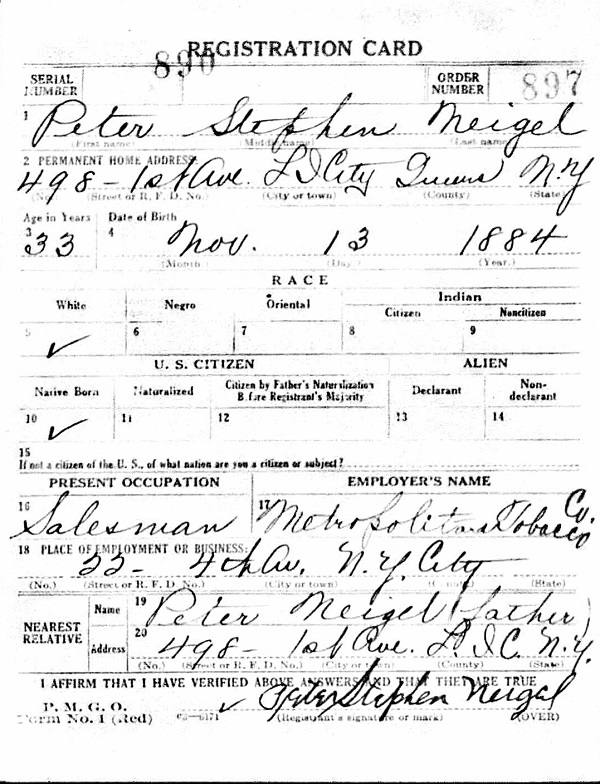 REGISTRATION CARD
SERIAL NUMBER 890 ORDER NUMBER 897
1 Peter Stephen Neigel
(First name) (Middle name) (Last name)
2 PERMANENT HOME ADDRESS:
498 - 1st Ave. L I City Queens N.Y
(No.) (Street or R. F. D. No.) (City or town) (County) (State)
Age in Years Date of Birth
3 33 4 Nov. 13 1884
(Month) (Day) (Year.)
RACE
White Negro Oriental Indian
Citizen Noncitizen
5 ✓ 6 7 8 9
U. S. CITIZEN ALIEN
Native Born Naturalized Citizen by Father's Naturalization Before Registrant's Majority Declarant Non-declarant
10 ✓ 11 12 13 14
15
If not a citizen of the U. S., of what nation are you a citizen or subject?
PRESENT OCCUPATION EMPLOYER'S NAME
16 Salesman 17 Metropolitan Tobacco Co.
18 PLACE OF EMPLOYMENT OR BUSINESS:
4th Av. N.Y. City
(No.) (Street or R. F. D. No.) (City or town) (County) (State)
NEAREST RELATIVE
Name 19 Peter Neigel (father)
Address 20 498 - 1st Ave. L.I.C. N.Y.
(No.) (Street or R. F. D. No.) (City or town) (County) (State)
I AFFIRM THAT I HAVE VERIFIED ABOVE ANSWERS AND THAT THEY ARE TRUE
P. M. G. O.
Form No. 1 (Red) ✓ Peter Stephen Neigel
(Registrant's signature or mark) (OVER)